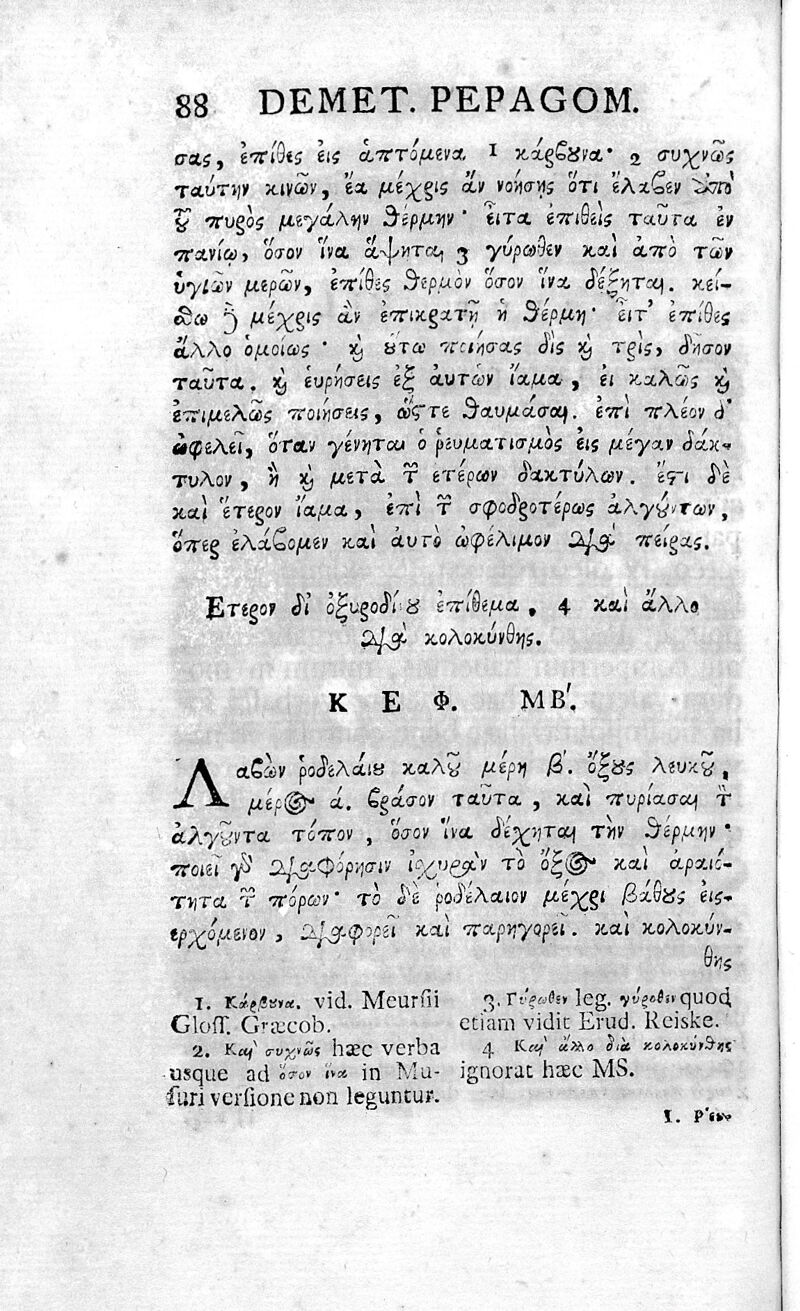 88 DEMET. PEPAGOM.
σας, ἐπίθες εἰς ἁπτόμενα 1 κάρβουνα· 2 συχνῶς
ταύτην κινῶν, ἔα μέχρις ἂν νοήσῃς ὅτι ἔλαβεν ἀπὸ
τοῦ πυρὸς μεγάλην θέρμην· εἶτα ἐπιθεὶς ταῦτα ἐν
πανίῳ, ὅσον ἵνα ἅψηται 3 γύρωθεν καὶ ἀπὸ τῶν
ὑγιῶν μερῶν, ἐπίθες θερμὸν ὅσον ἵνα δέξηται. κεί-
σθω δὲ μέχρις ἂν ἐπικρατῇ ἡ θέρμη· εἶτ' ἐπίθες
ἄλλο ὁμοίως· καὶ οὕτω ποιήσας δὶς καὶ τρὶς, δῆσον
ταῦτα. καὶ εὑρήσεις ἐξ αὐτῶν ἴαμα, εἰ καλῶς καὶ
ἐπιμελῶς ποιήσεις, ὥστε θαυμάσαι. ἐπὶ πλέον δ'
ὠφελεῖ, ὅταν γένηται ὁ ῥευματισμὸς εἰς μέγαν δάκ-
τυλον, ἢ καὶ μετὰ τῶν ἑτέρων δακτύλων. ἔστι δὲ
καὶ ἕτερον ἴαμα, ἐπὶ τῶν σφοδροτέρως ἀλγούντων,
ὅπερ ἐλάβομεν καὶ αὐτὸ ὠφέλιμον διὰ πείρας.
Ετερον δι' ὀξυροδίνου ἐπίθεμα. 4 καὶ ἄλλο
διὰ κολοκύνθης.
Κ Ε Φ. ΜΒ'.
Λαβὼν ῥοδελαίου καλοῦ μέρη β'. ὄξους λευκοῦ,
μέρος ά. βράσον ταῦτα, καὶ πυρίασαι τὸν
ἀλγοῦντα τόπον, ὅσον ἵνα δέχηται τὴν θέρμην·
ποιεῖ γὰρ διαφόρησιν ἰσχυρὰν τὸ ὄξος καὶ ἀραιό-
τητα τῶν πόρων· τὸ δὲ ῥοδέλαιον μέχρι βάθους εἰσ-
ερχόμενον, διαφορεῖ καὶ παρηγορεῖ. καὶ κολοκύν-
θης
1. Κάρβυνα. vid. Meursii
Gloss. Græcob.
2. Καὶ συχνῶς hæc verba
usque ad ὅσον ἵνα in Mu-
suri versione non leguntur.
3. Γύρωθεν leg. γύροθεν quod
etiam vidit Erud. Reiske.
4 Καὶ ἄλλο διὰ κολοκύνθης
ignorat hæc MS.
1.